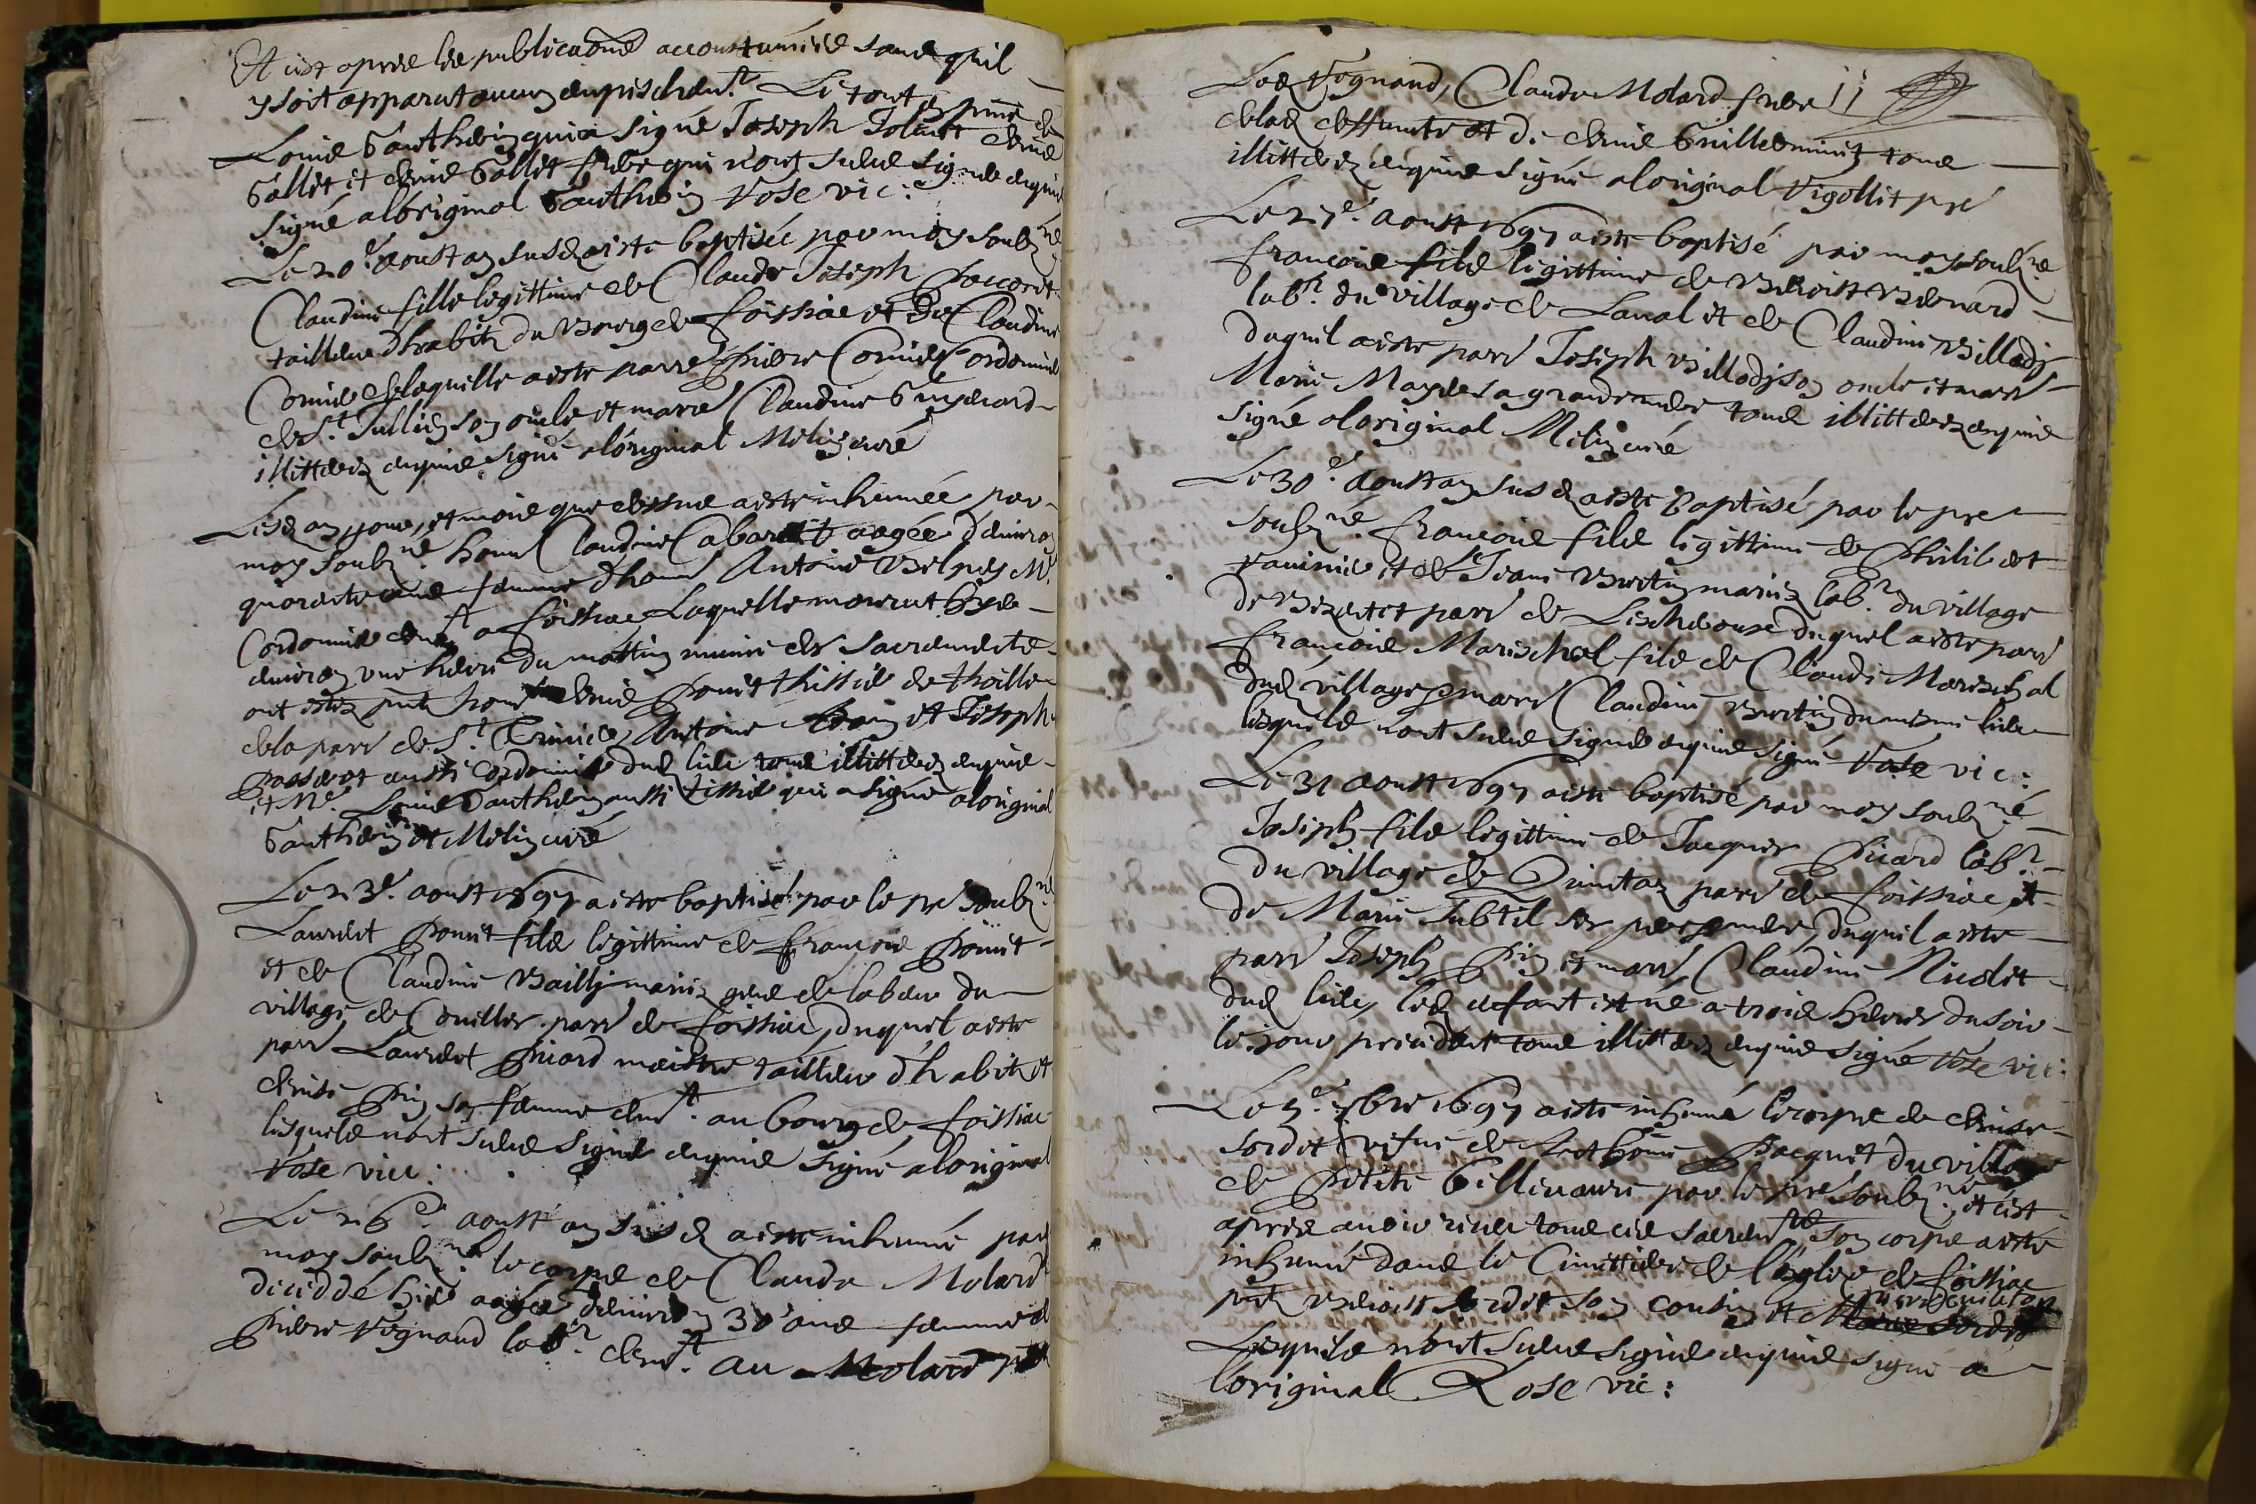 Et c'est apres les publicaõns accoustumées sans quil
y soit apparut aucun empeschemt. Le tout en pnce de
Louis Gautheiz qui a signé Joseph Denis
Gallet et Denis Gallet frere qui n'ont sceus signer enquis
signé a l'original Gautheiz Rose vic:
Le 20e aoust an susd a esté baptisée par moy soubzné
Claudine fille legittime de Claude Joseph
tailleur dhabitz du Bourg de foissiac et de Claudine
Cornier de laquelle a esté parr Pierre Cornier Cordonnier
de St Jullien son oncle et marr Claudine
illitterez enquis signé a l'original Melin curé
Lesd an, jour, et mois que dessus a esté inhumée par
moy soubzné honn Claudine Cabaret aagée d'environ
quarante ans femme dhonn Antoine Mre
Cordonnier demt a foissiac Laquelle mourut hyer
environ une heure du mattin munie des sacrements
ont estez pnt hon Denis Ponet thissier de thoille
de la parr de St Trivier, Antoine et Joseph
aussi Cordonnier dud lieu tous illitterez enquis
et Mre Louis Gautheiz aussi tissier qui a signé a loriginal
Gautheiz et Melin curé
Le 23e aoust 1697 a esté baptisé par le pre soubzné
Laurent Ponet fils legittime de françois Ponet
et de Claudine Bailly mariez gens de labeur du
village de Cuiller parr de foissiac, duquel a esté
parr Laurent Picard maistre tailleur d'habitz et
Denise Pin sa femme demt au bourg de foissiac
lesquels n'ont sceus signer enquis signé a loriginal
Rose vicc:
Le 26e aoust an susd a esté inhumé par
moy soubzné le corps de Claude Molard
deceddé hier aagée denviron 30 ans femme de
Pierre Vegnard labr demt au Molard pnt
Led Vegnard, Claude Molard frere 11
de lad deffuncte et de Denis Guilleminet tous
illitterez enquis signé a loriginal Vigollet pre
Le 27e aoust 1697 a esté baptisé par moy soubzné
francois fils legittime de Benoist Bernard
labr du village de Laval et de Claudine Billody
duquel a esté parr Joseph Billody son oncle et marr
Marie sa grandmere tous illitterez enquis
signé a loriginal Melin curé
Le 30e aoust an susd a esté baptisé par le pre
soubzné francois fils legittime de Philibert
et de Jeane Bretin mariez labr du village
de parr de Lescheroux duquel a esté parr
françois Mareschal fils de Claude Mareschal
dud village, marr Claudine Bretin du mesme lieu
lesquels n'ont sceus signer enquis signé Rose vic:
Le 31 aoust 1697 a esté baptisé par moy soubzné
Joseph fils legittime de Jacques Picard labr
du village de parr de foissiac, et
de Marie Subtil ses pere et mere, duquel a esté
parr Joseph Pin et marr Claudine Nicolet
dud lieu, led enfant est né a trois heures du soir
le jour precedent tous illitterez enquis signé Rose vic:
Le 5e 7bre 1697 a esté inhumé le corps de Denise
Sordet vefue de Anthoine Pacquet du village
de Petite Villeneuve par le pre soubzné, et cest
apres auoir receu tous ces sacremts son corps a esté
inhumé dans le Cimittiere de l'eglise de foissiac
pnt Benoist Sordet son cousin et
Lesquels n'ont sceus signer enquis signé a
loriginal Rose vic: